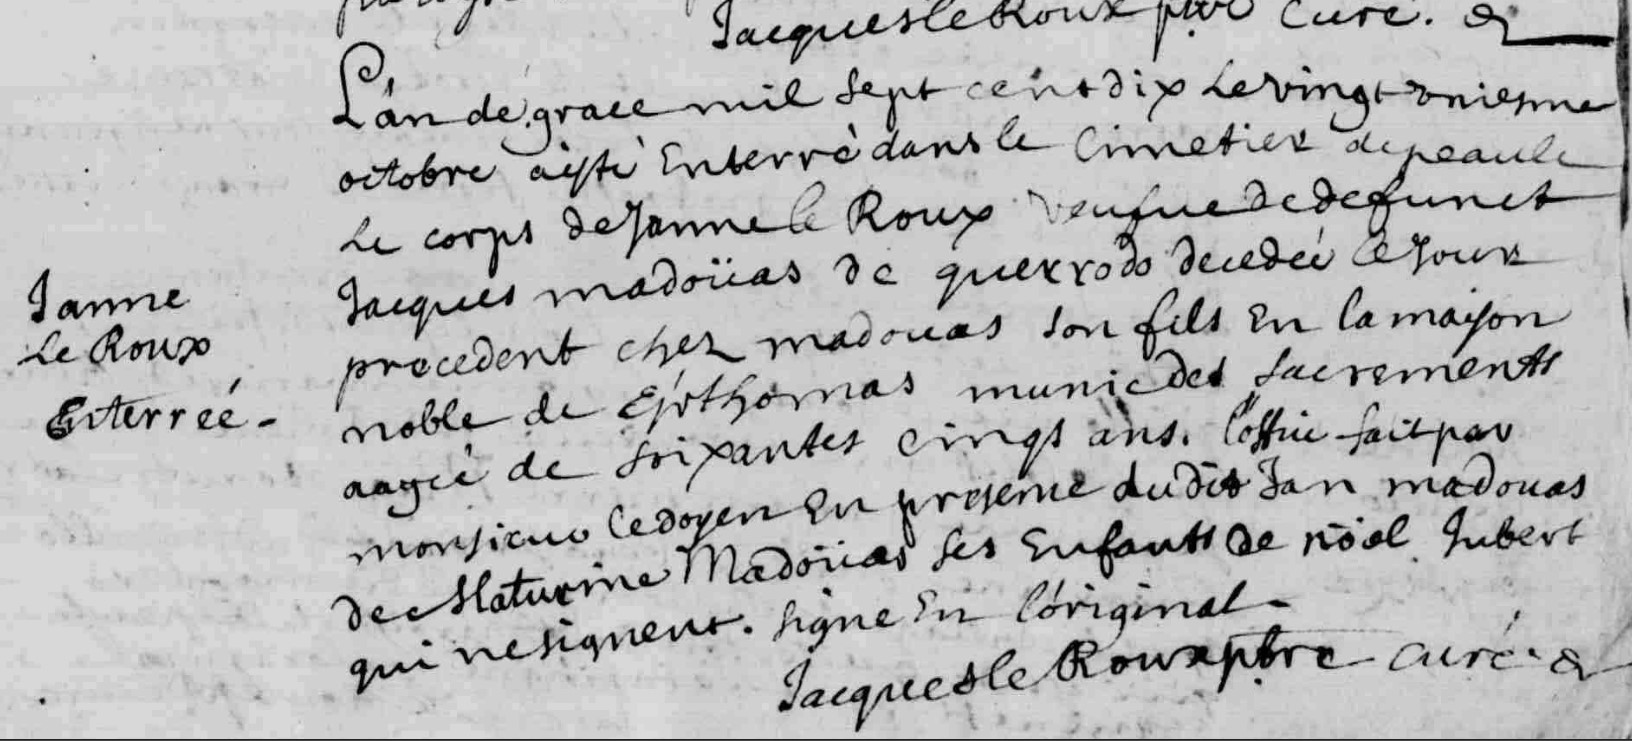 Jacques le Roux ptre Curé. &
L'an de grace mil sept cent dix Le vingt uniesme
octobre a esté Enterré dans le Cimetier de peaule
Le corps de Janne le Roux veufue de defunct
Jacques madoüas de querrodo decedeé Le Jour
Janne
precedent chez madouas son fils En la maison
Le Roux
noble de munie des sacrements
Enterreé -
aagée de soixantes cinqs ans. l'office fait par
monsieur le doyen En presence dudit Jan madouas
de Maturine Madoüas ses Enfants de noël Jubert
qui ne signent. signé En l'original
Jacques le Roux ptre curé. &